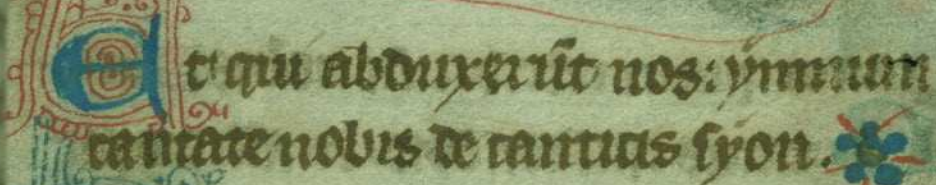 Et qui abduxerūt nos: ymnum
cantate nobis de canticis syon.